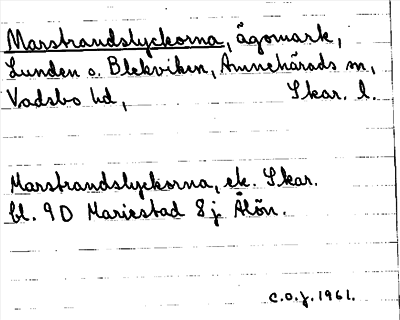 Marstrandslyckorna, ägomark,
Lunden o. Blekviken, Amnehärads sn,
Vadsbo hd, Skar. l.
Marstrandslyckorna, ek. Skar.
bl. 9D Mariestad 8j Ålön.
C.O.J. 1961.